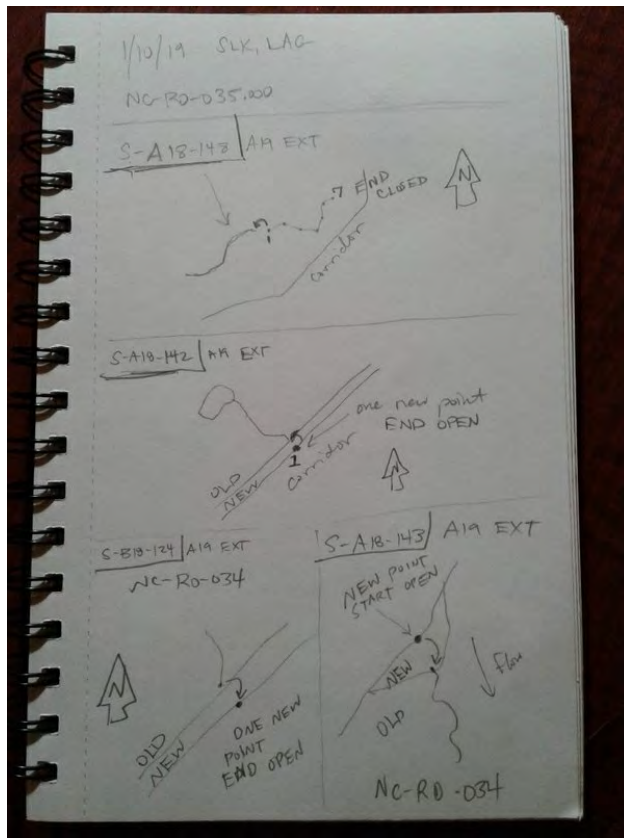 1/10/19 SLK, LAG
NC-RO-035.000
S-A18-148 A19 EXT
7 END
CLOSED
1
corridor
N
S-A18-142 A19 EXT
one new point
END OPEN
1
OLD
NEW
corridor
N
S-B18-124 A19 EXT
NC-RO-034
N
OLD
NEW
ONE NEW
POINT
END OPEN
S-A18-143 A19 EXT
NEW POINT
START OPEN
NEW
OLD
Flow
NC-RD-034